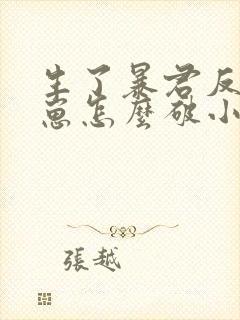 生了暴君反
崽怎麼破小
張越